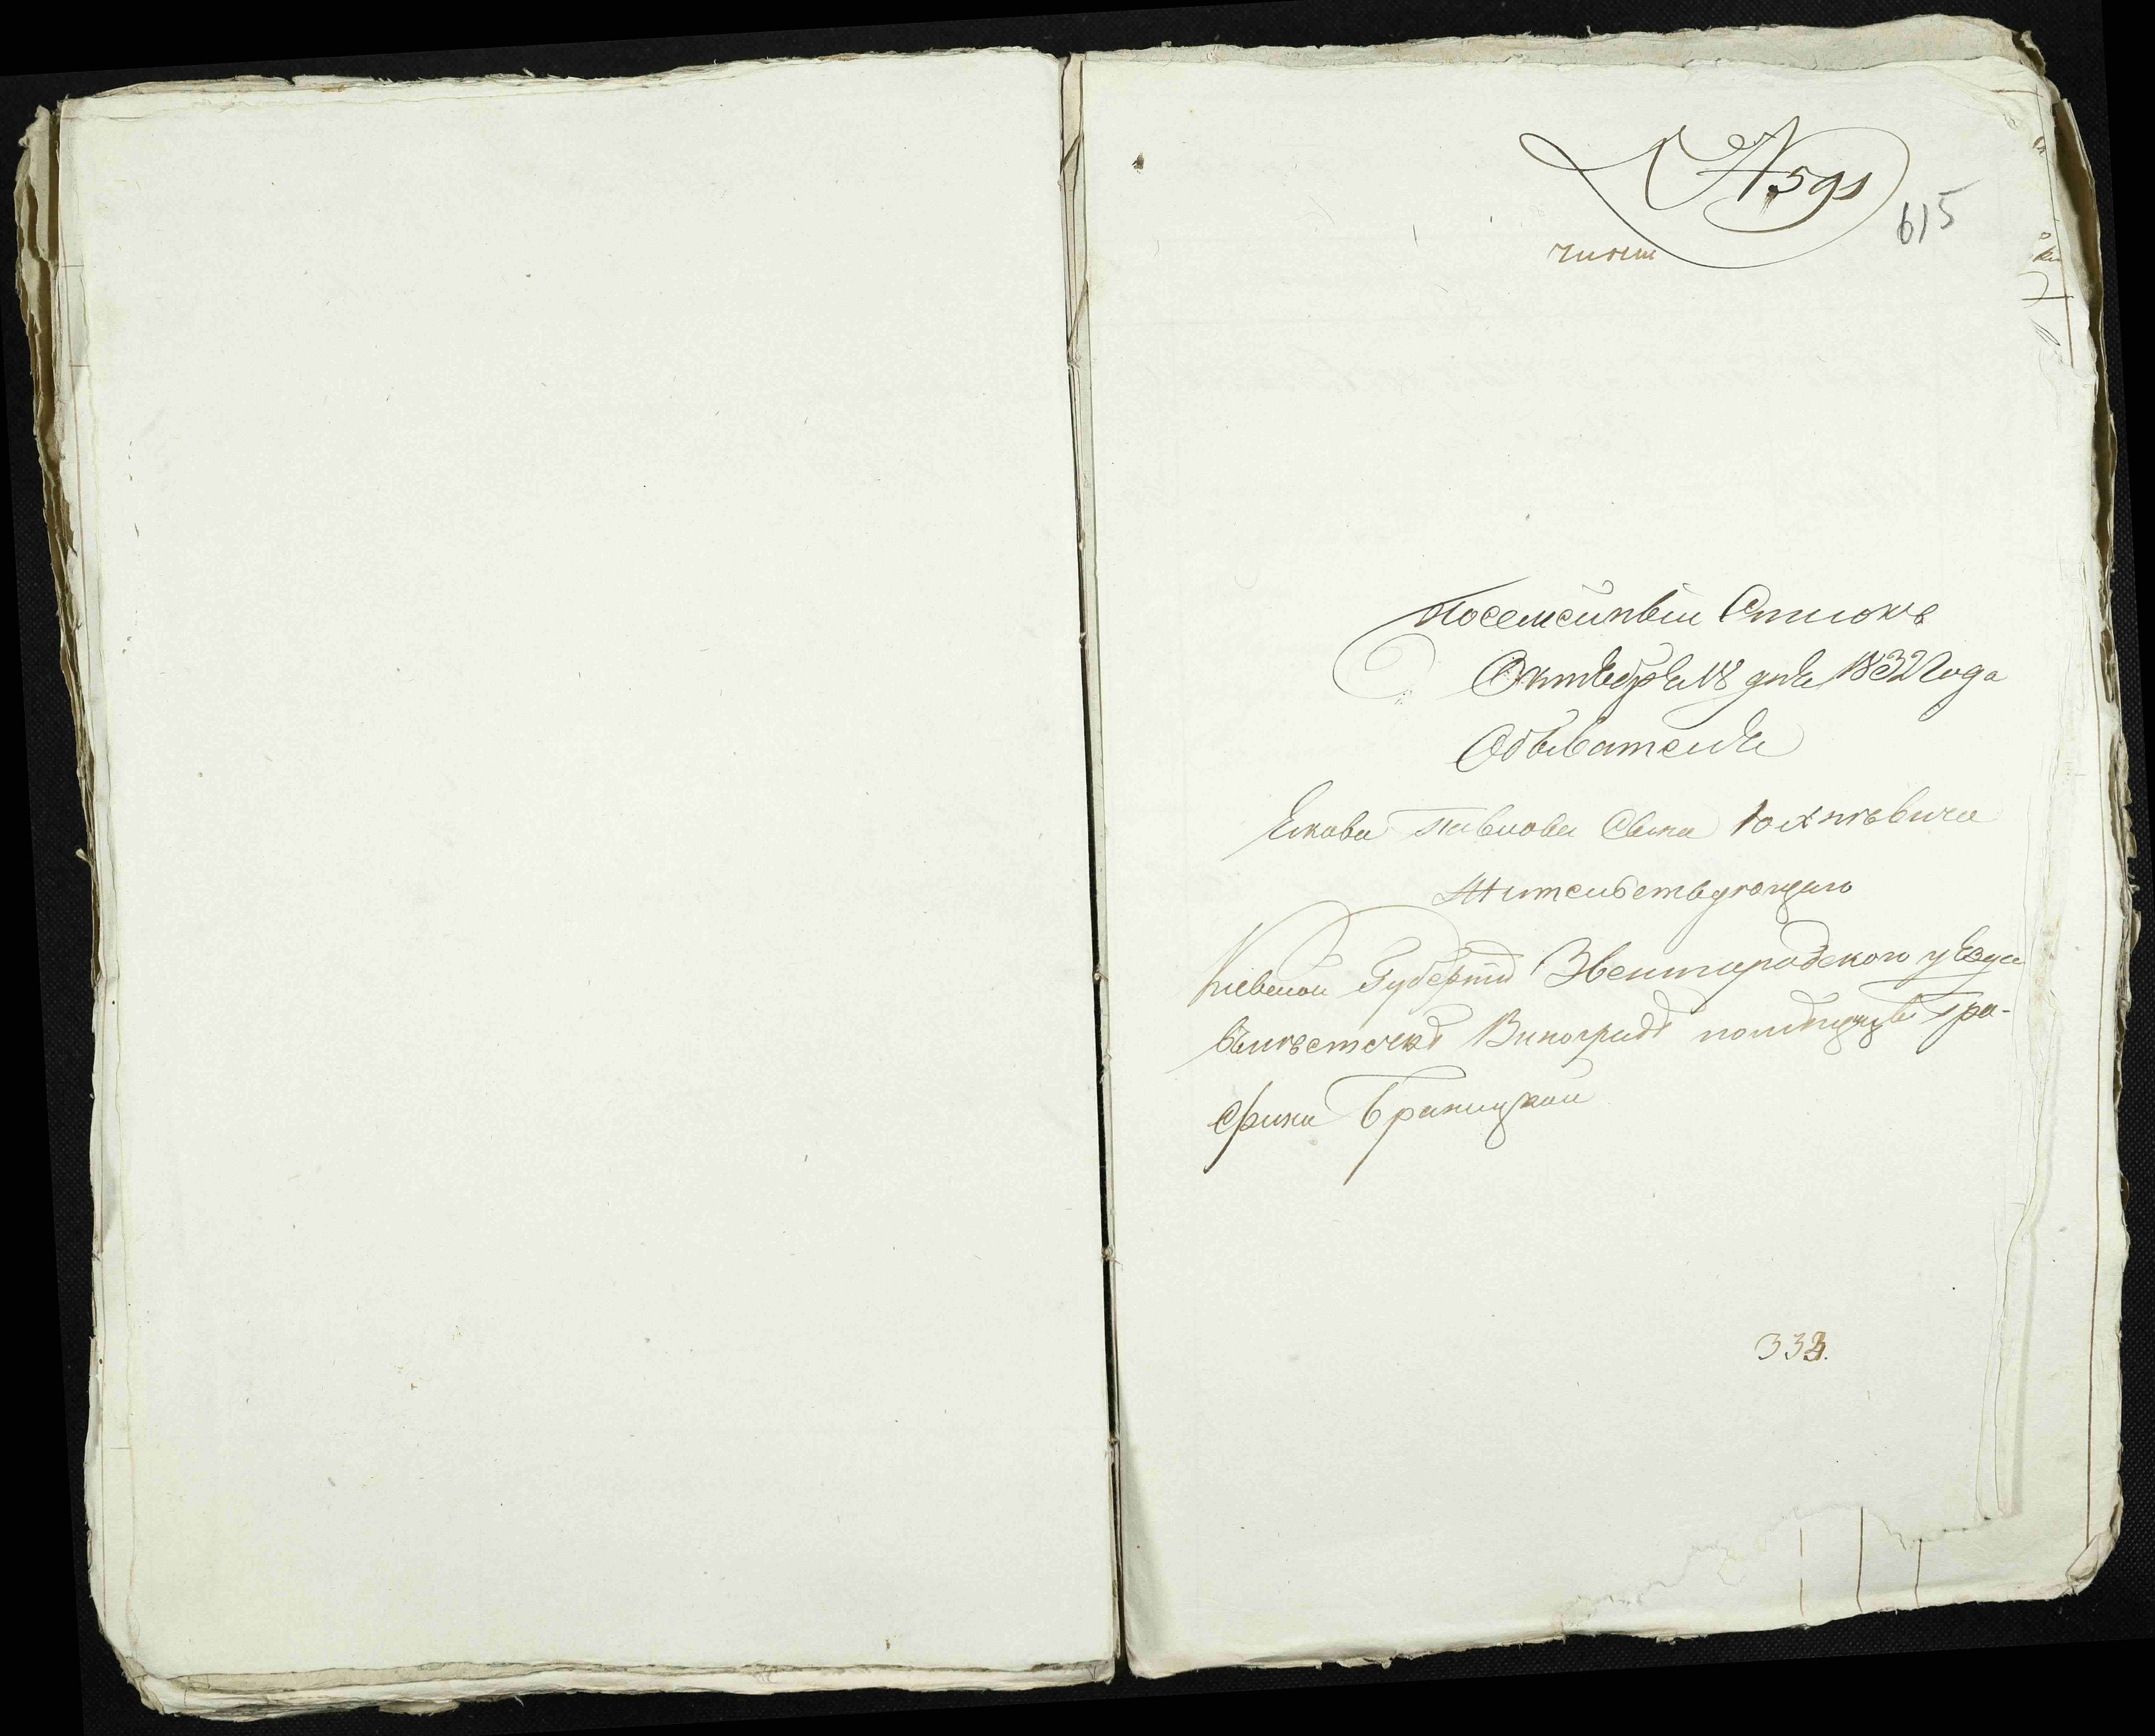 № 591
615
читт
Посемейный Списокъ
Октября 18 дня 1832 года
Обывателя
Якова Павлова Сына Юхневича
Жительствующаго
Киевской Губерніи Звенигородского уѣзда
вмѣстечкѣ Виноградѣ помѣщицы Гра-
фини Браницкой
333.